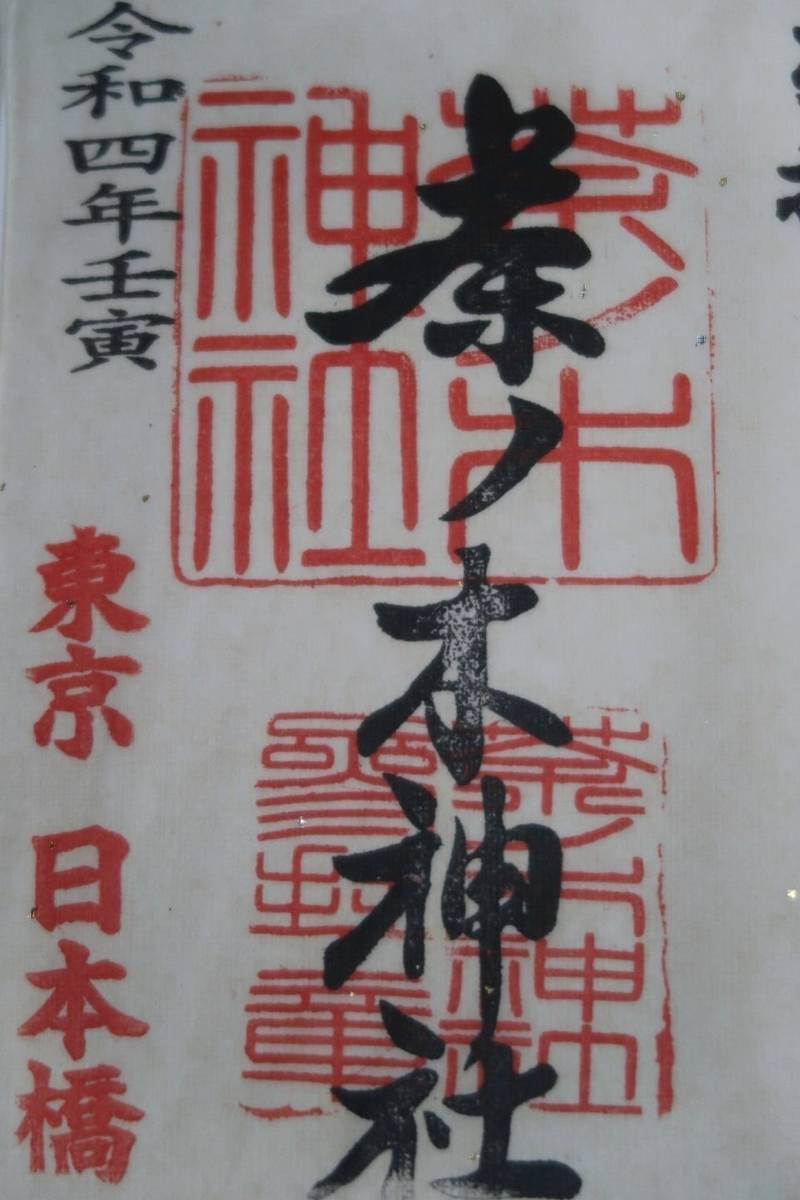 茶ノ木神社
茶ノ木
神社
茶ノ木神社
參拝章
令和四年壬寅
東京 日本橋